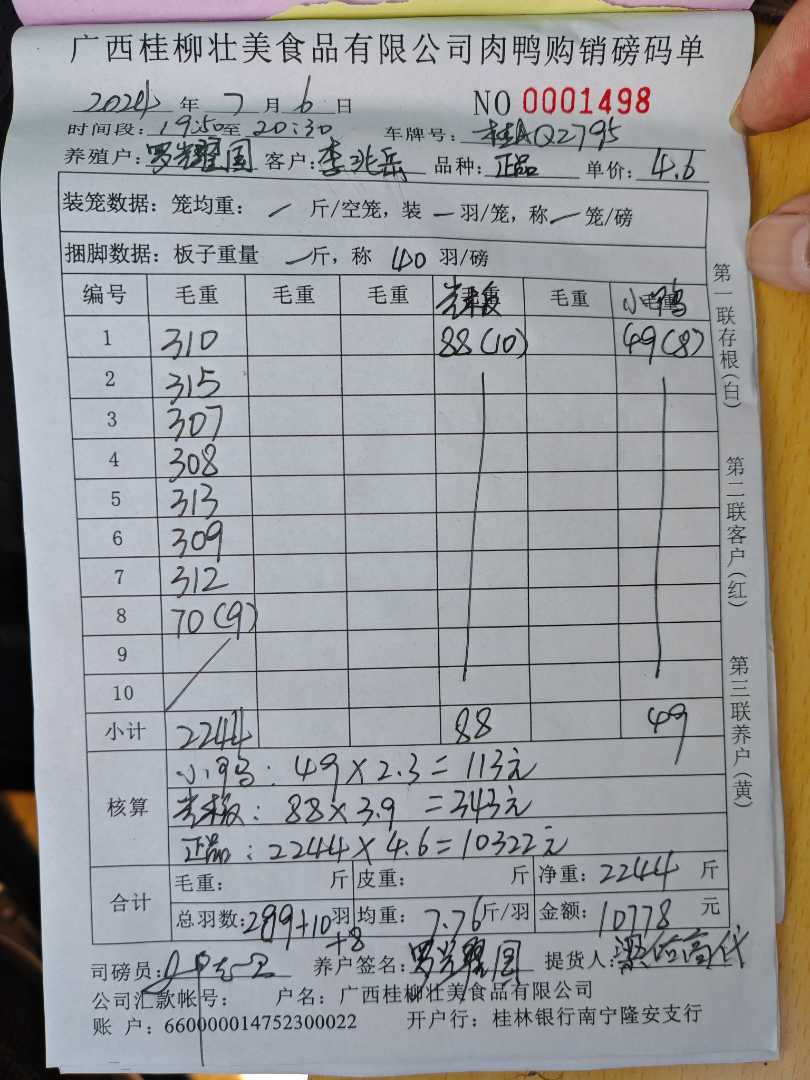 广西桂柳壮美食品有限公司肉鸭购销磅码单
2024年7月6日 NO 0001498
时间段：19:50至20:30 车牌号：桂AQ2795
养殖户：罗耀国 客户：李兆岳 品种：正品 单价：4.6
装笼数据：笼均重：/斤/空笼，装一羽/笼，称一笼/磅
捆脚数据：板子重量一斤，称40羽/磅
编号 毛重 毛重 毛重 毛重 小鸭
1 310 88(10) 49(8)
2 315
3 307
4 308
5 313
6 309
7 312
8 70(9)
9
10
小计 2244 88 49
核算 小鸭：49×2.3=113元
：88×3.9=343元
正品：2244×4.6=10322元
合计 毛重： 斤 皮重： 斤 净重：2244斤
总羽数：289+10+8羽 均重：7.76斤/羽 金额：10778元
司磅员： 养户签名：罗耀国 提货人：
公司汇款帐号： 户名：广西桂柳壮美食品有限公司
账户：660000014752300022 开户行：桂林银行南宁隆安支行
第一联存根（白）
第二联客户（红）
第三联养户（黄）